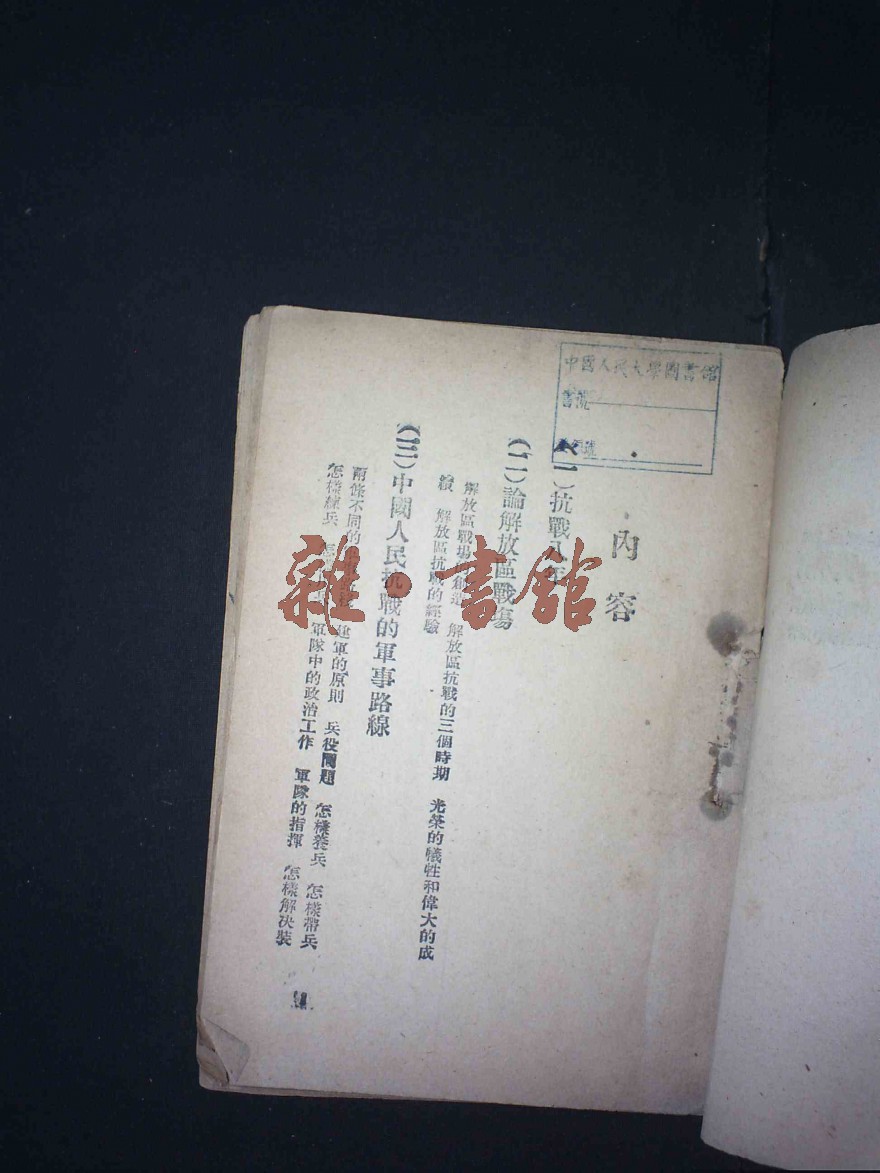 中國人民大學圖書館
書號
內容
(一)抗戰八年
(二)論解放區戰場
解放區戰場 創造 解放區抗戰的三個時期 光榮的犧牲和偉大的成
績 解放區抗戰的經驗
(三)中國人民抗戰的軍事路線
兩條不同的 建軍的原則 兵役問題 怎樣養兵 怎樣帶兵
怎樣練兵 軍隊中的政治工作 軍隊的指揮 怎樣解決裝
雜·書館